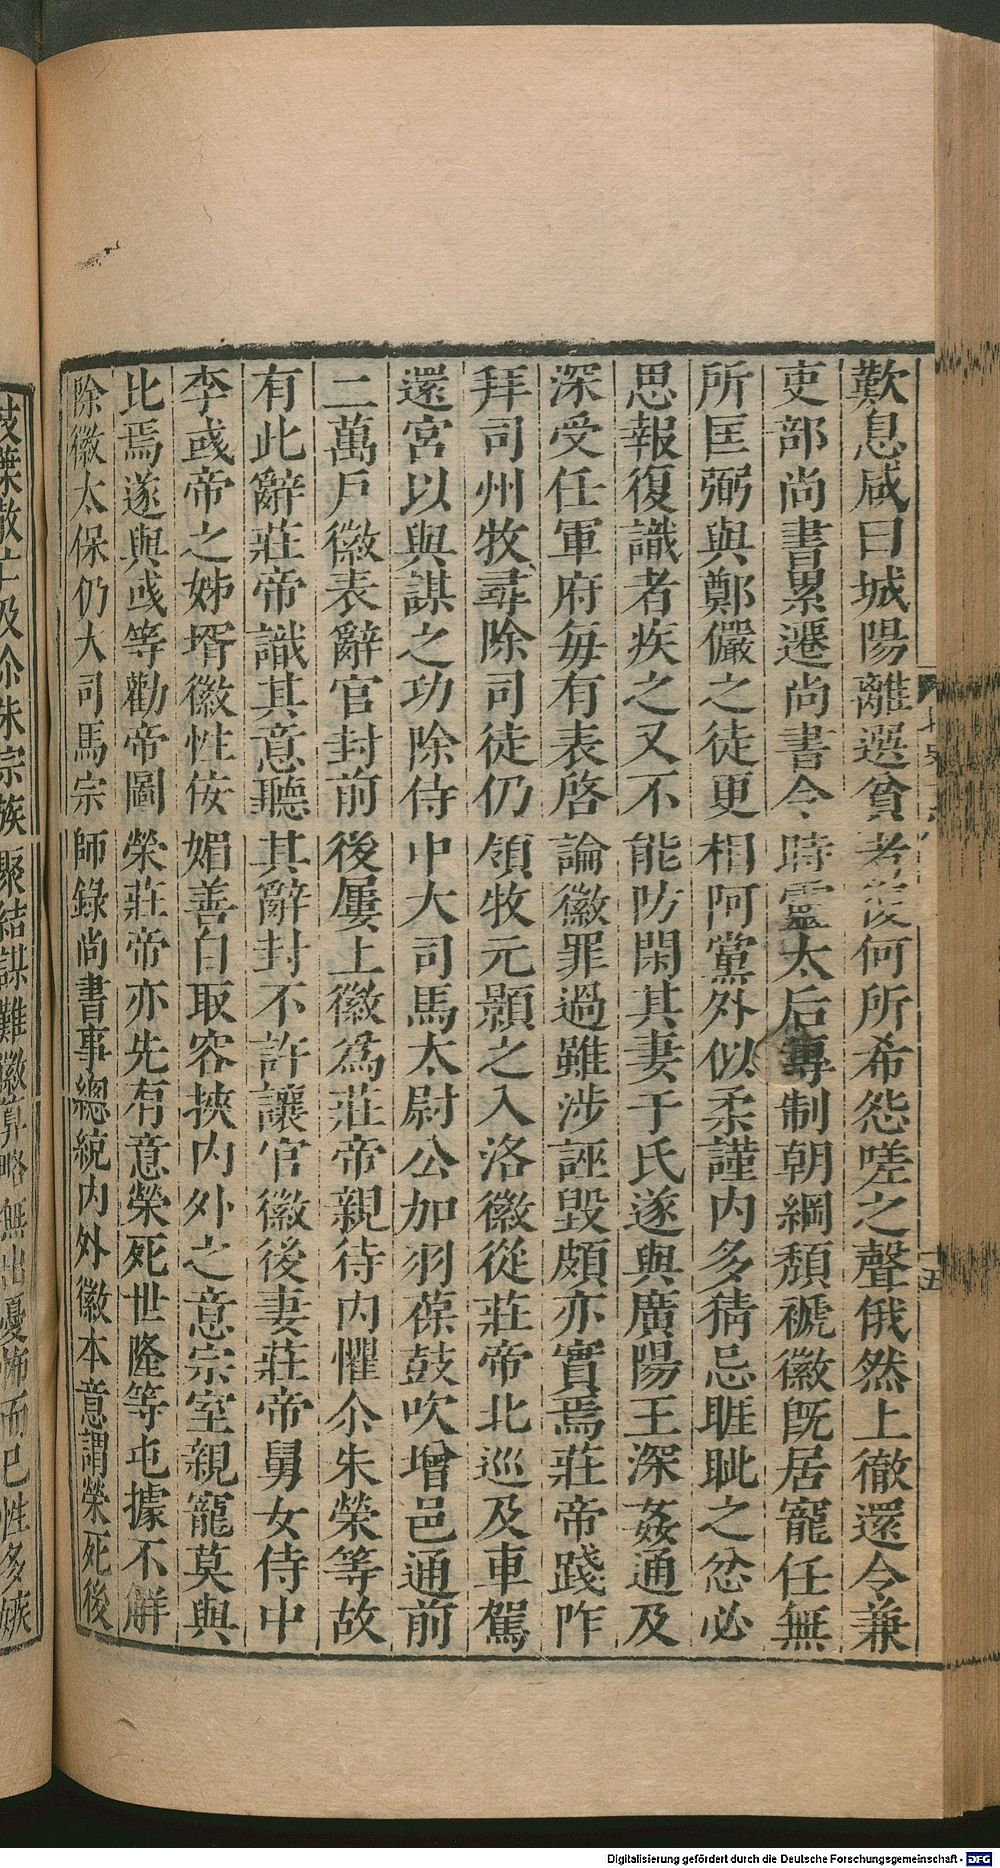 歎息咸曰城陽離選貧者復何所希怨嗟之聲俄然上徹還令兼
吏部尚書累遷尚書令時靈太后專制朝綱頹褫徽旣居寵任無
所匡弼與鄭儼之徒更相阿黨外似柔謹内多猜忌睚眦之忿必
思報復識者疾之又不能防閑其妻于氏遂與廣陽王深姦通及
深受任軍府每有表啓論徽罪過雖涉誣毀頗亦實焉莊帝踐阼
拜司州牧尋除司徒仍領牧元顥之入洛徽從莊帝北巡及車駕
還宮以與謀之功除侍中大司馬太尉公加羽葆鼓吹增邑通前
二萬戸徽表辭官封前後屢上徽爲莊帝親待内懼尒朱榮等故
有此辭莊帝識其意聽其辭封不許讓官徽後妻莊帝舅女侍中
李彧帝之姊壻徽性佞媚善自取容挾内外之意宗室親寵莫與
比焉遂與彧等勸帝圖榮莊帝亦先有意榮死世隆等屯據不解
除徽太保仍大司馬宗師錄尚書事總統内外徽本意謂榮死後
枝葉散亡及尒朱宗族聚結謀難徽算略無出憂怖而已性多嫉
十五
Digitalisierung gefördert durch die Deutsche Forschungsgemeinschaft - DFG